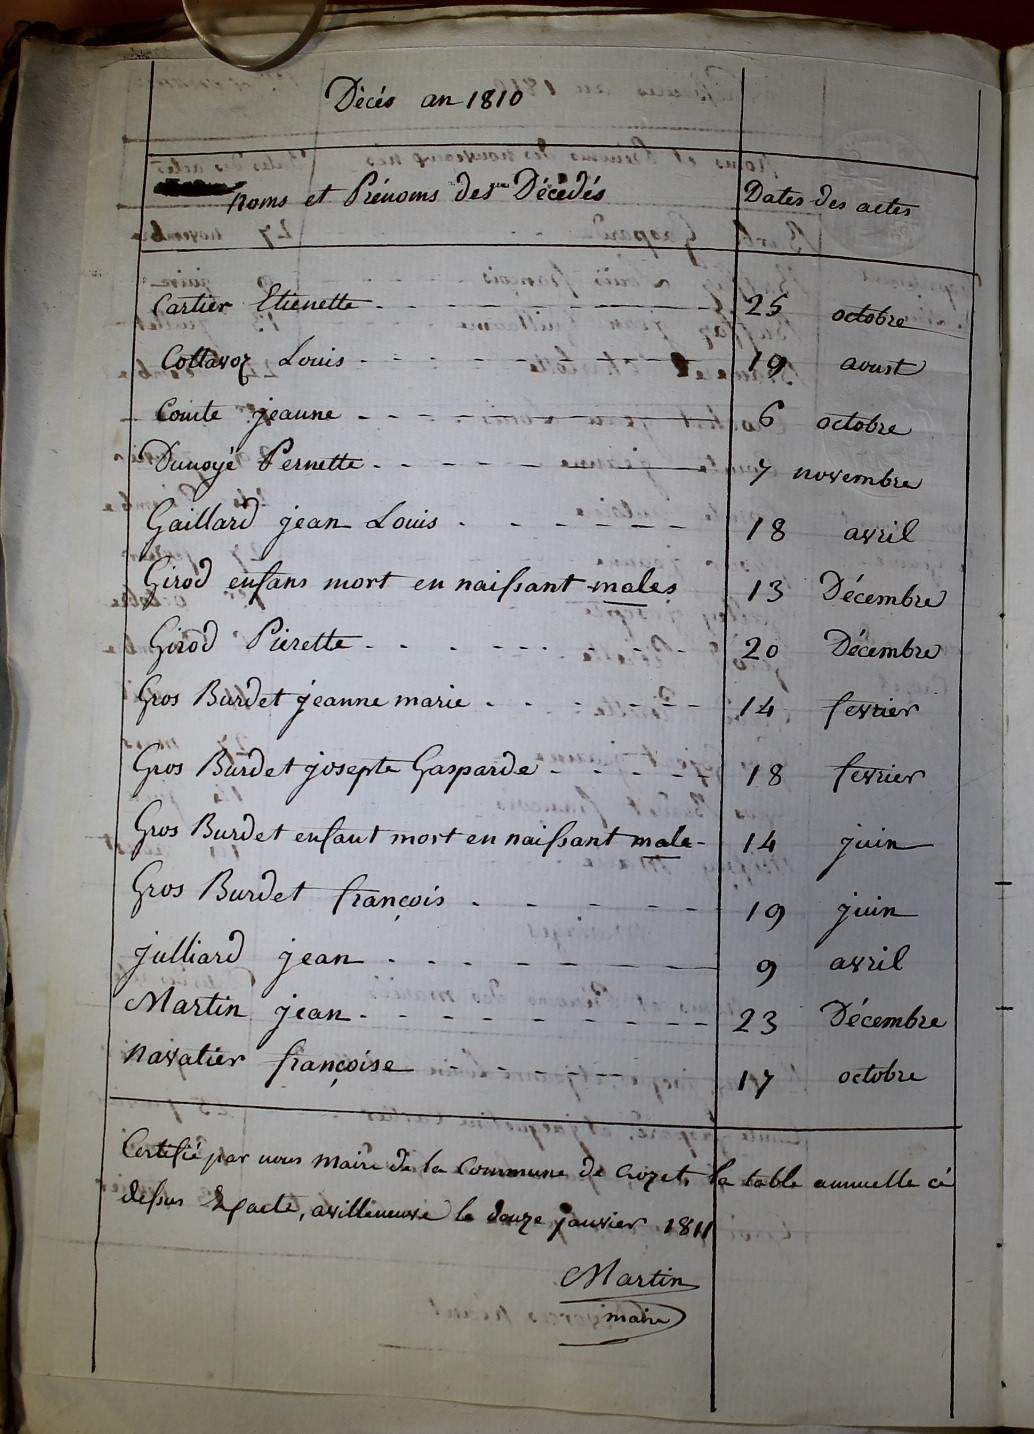 Décés an 1810
Noms et Prénoms des Décédés Dates des actes
Cartier Etienette 25 octobre
Collavoz Louis 19 aoust
Comte jeanne 6 octobre
Dunoyé Pernette 7 novembre
Gaillard jean Louis 18 avril
Girod enfans mort en naissant males 13 Décembre
Girod Pierette 20 Décembre
Gros Burdet jeanne marie 14 fevrier
Gros Burdet josepte Gasparde 18 fevrier
Gros Burdet enfant mort en naissant male 14 juin
Gros Burdet françois 19 juin
julliard jean 9 avril
Martin jean 23 Décembre
navatier françoise 17 octobre
Certifié par nous maire de la Commune de Crozet, la table annuelle cé
dessus Exacte, a villeneuve le douze janvier 1811
Martin
maire